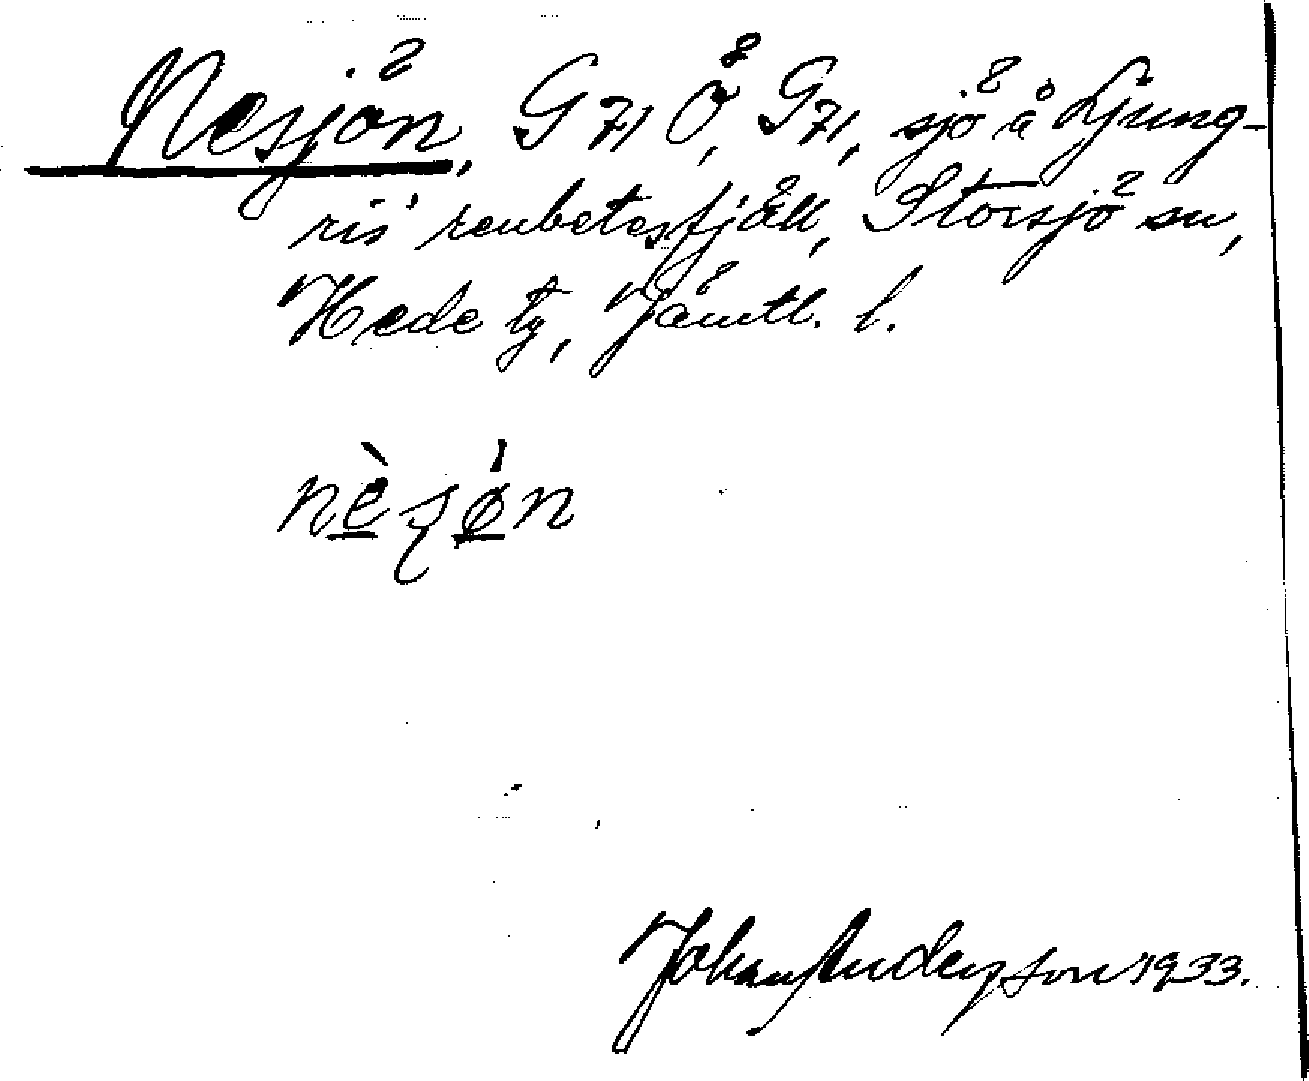 Nesjön, G 71 Ö, G 71, sjö å Ljung-
ris renbetesfjäll, Storsjö sn,
Hede tg, Jämtl. l.
nèʂǿn
Johan Anderson 1933.